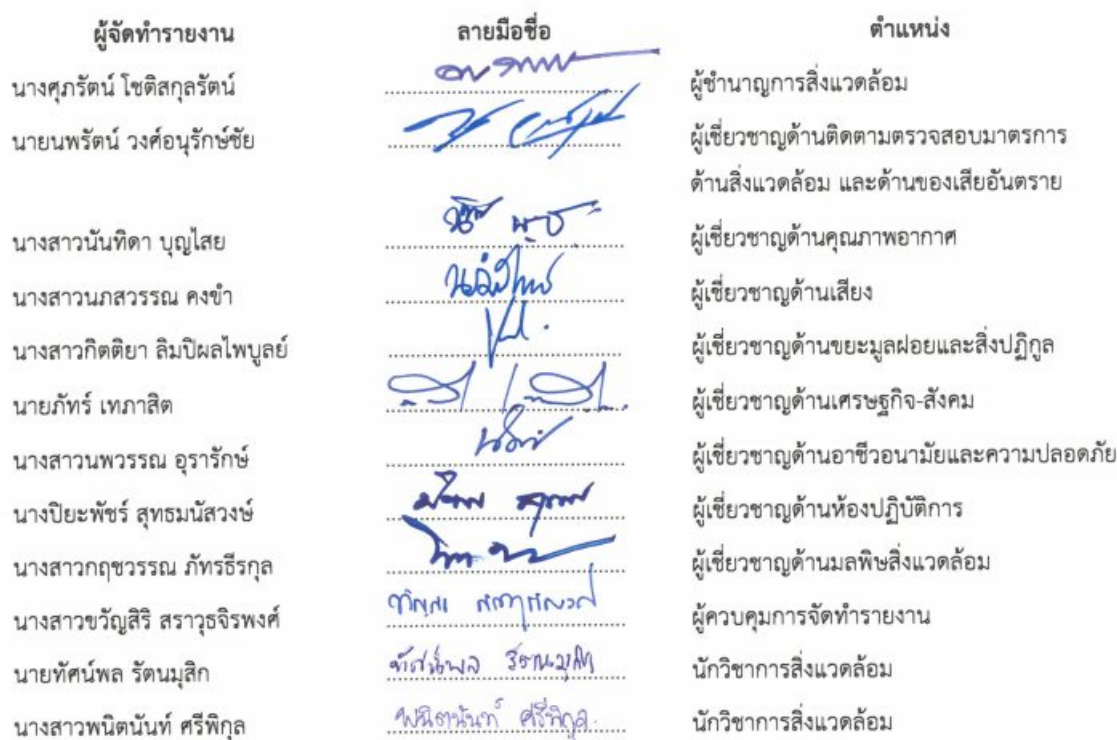 ผู้จัดทำรายงาน ลายมือชื่อ ตำแหน่ง
นางศุภรัตน์ โชติสกุลรัตน์ ผู้ชำนาญการสิ่งแวดล้อม
นายนพรัตน์ วงศ์อนุรักษ์ชัย ผู้เชี่ยวชาญด้านติดตามตรวจสอบมาตรการ
ด้านสิ่งแวดล้อม และด้านของเสียอันตราย
นางสาวนันทิดา บุญไสย ผู้เชี่ยวชาญด้านคุณภาพอากาศ
นางสาวนภสวรรณ คงขำ ผู้เชี่ยวชาญด้านเสียง
นางสาวกิตติยา ลิมปิผลไพบูลย์ ผู้เชี่ยวชาญด้านขยะมูลฝอยและสิ่งปฏิกูล
นายภัทร์ เทภาสิต ผู้เชี่ยวชาญด้านเศรษฐกิจ-สังคม
นางสาวนพวรรณ อุรารักษ์ ผู้เชี่ยวชาญด้านอาชีวอนามัยและความปลอดภัย
นางปิยะพัชร์ สุทธมนัสวงษ์ ผู้เชี่ยวชาญด้านห้องปฏิบัติการ
นางสาวกฤชวรรณ ภัทรธีรกุล ผู้เชี่ยวชาญด้านมลพิษสิ่งแวดล้อม
นางสาวขวัญสิริ สราวุธจิรพงศ์ ผู้ควบคุมการจัดทำรายงาน
นายทัศน์พล รัตนมุสิก ทัศน์พล รัตนมุสิก นักวิชาการสิ่งแวดล้อม
นางสาวพนิตนันท์ ศรีพิกุล พนิตนันท์ ศรีพิกุล นักวิชาการสิ่งแวดล้อม